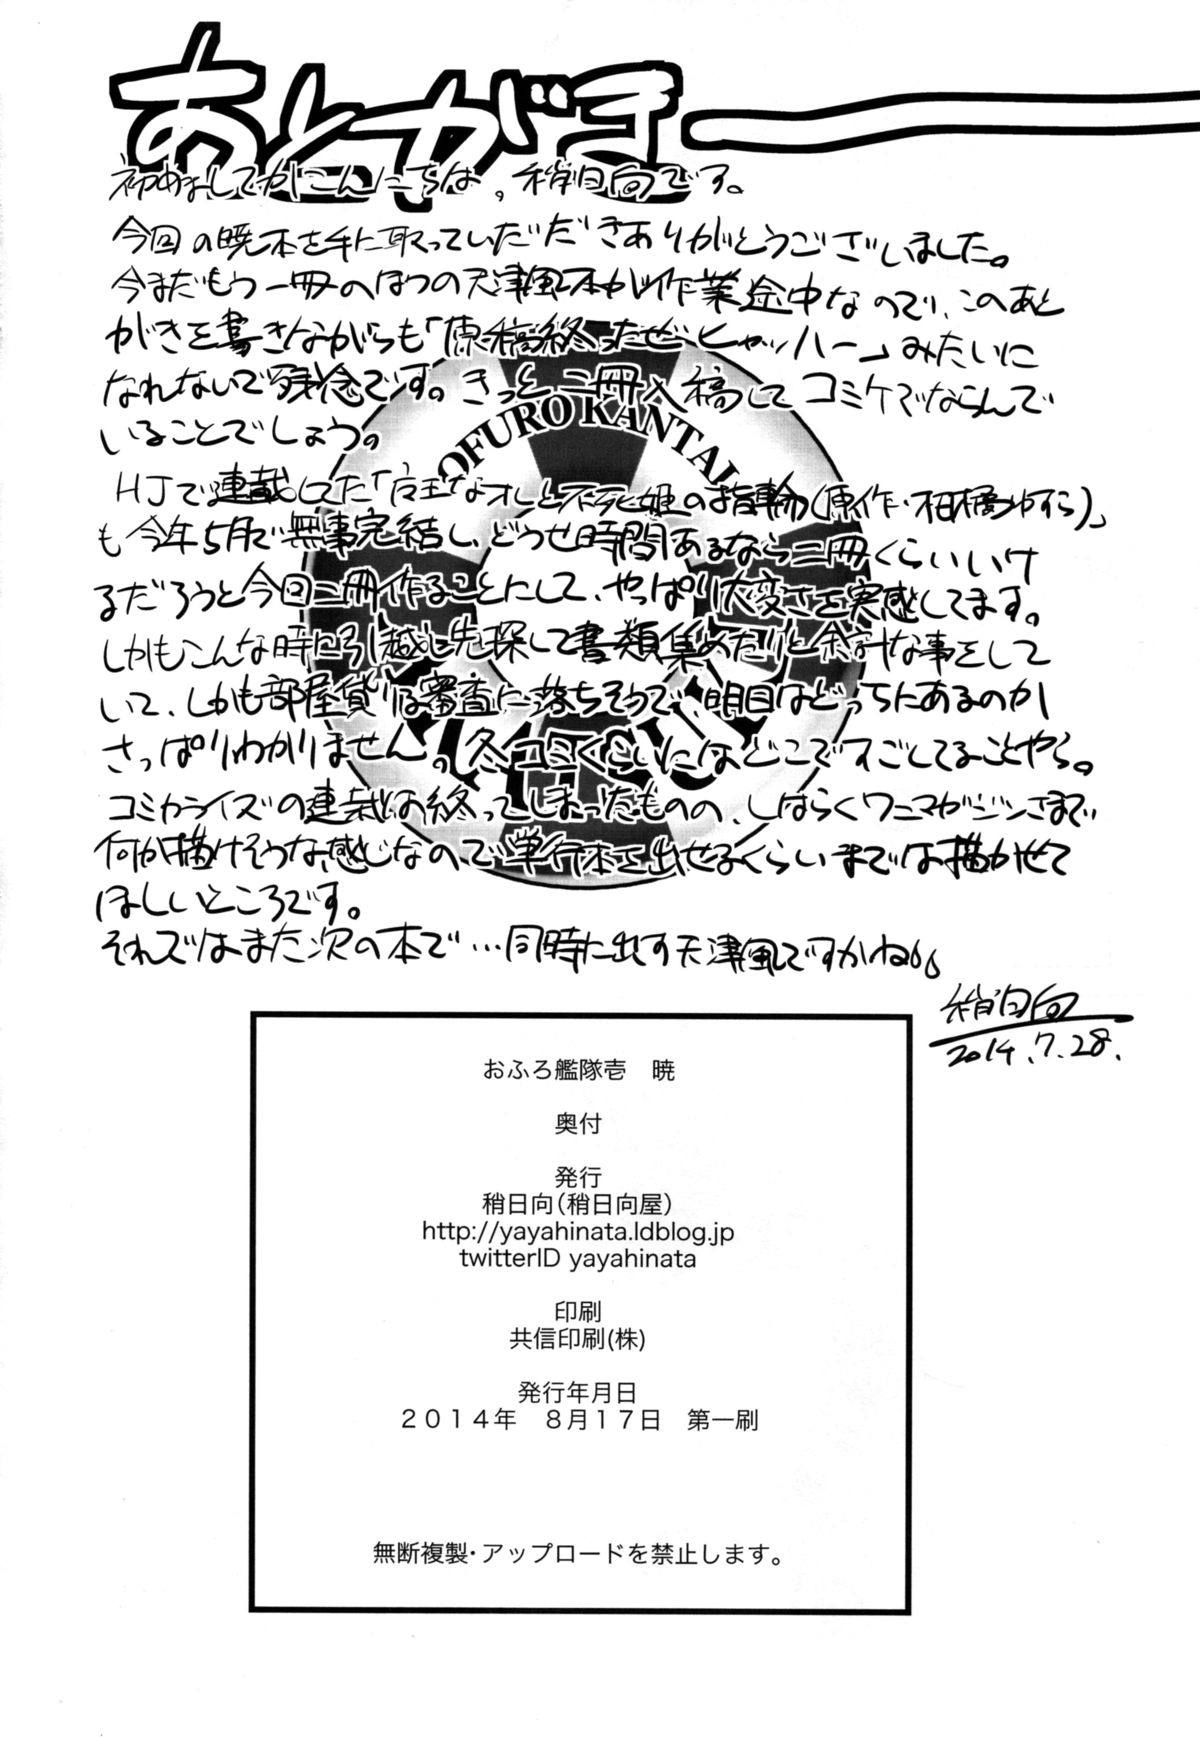 あとがき
初めましてかこんにちは、稍日向です。
今回の暁本を手に取っていただきありがとうございました。
今まだもう一冊のほうの天津風本が作業途中なので、このあと
がきを書きながらも「原稿終ったぜーヒャッハー」みたいに
なれないで残念です。きっと二冊入稿してコミケでならんで
いることでしょう。
OFURO KANTAI
HJで連載してた「店主なオレと不死姫の指輪(原作・柑橘ゆすら)」
も今年5月で無事完結し、どうせ時間あるなら二冊くらいいけ
るだろうと今回二冊作ることにして、やっぱり大変さを実感してます。
しかもこんな時に引越し先探して書類集めたりと余計な事をして
いて、しかも部屋貸りは審査に落ちそうで、明日はどっちにあるのか
さっぱりわかりません。冬コミくらいにはどこですごしてることやら。
コミカライズの連載は終ってしまったものの、しばらくワニマガジンさまで
何か描けそうな感じなので単行本で出せるくらいまでは描かせて
ほしいところです。
それではまた次の本で…同時に出す天津風ですかね。。
稍日向
2014.7.28.
おふろ艦隊壱　暁
奥付
発行
稍日向(稍日向屋)
http://yayahinata.ldblog.jp
twitterID yayahinata
印刷
共信印刷(株)
発行年月日
２０１４年　８月１７日　第一刷
無断複製・アップロードを禁止します。